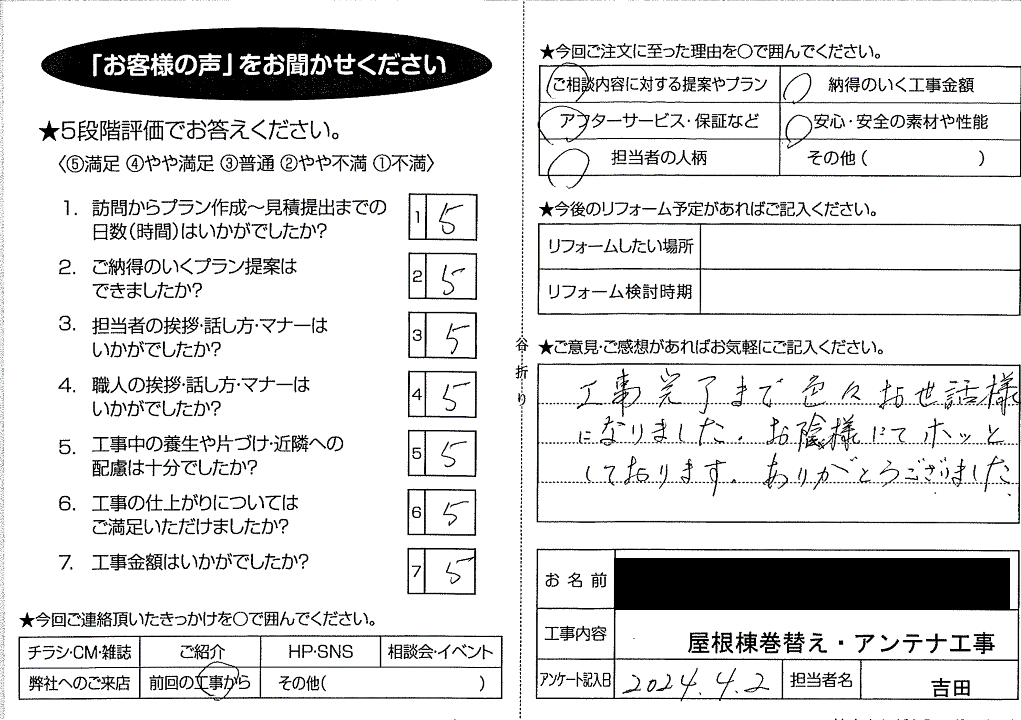 「お客様の声」をお聞かせください
★5段階評価でお答えください。
〈⑤満足 ④やや満足 ③普通 ②やや不満 ①不満〉
1. 訪問からプラン作成～見積提出までの
日数(時間)はいかがでしたか?
1 5
2. ご納得のいくプラン提案は
できましたか?
2 5
3. 担当者の挨拶・話し方・マナーは
いかがでしたか?
3 5
4. 職人の挨拶・話し方・マナーは
いかがでしたか?
4 5
5. 工事中の養生や片づけ・近隣への
配慮は十分でしたか?
5 5
6. 工事の仕上がりについては
ご満足いただけましたか?
6 5
7. 工事金額はいかがでしたか?
7 5
★今回ご連絡頂いたきっかけを○で囲んでください。
チラシ・CM・雑誌 ご紹介 HP・SNS 相談会・イベント
弊社へのご来店 前回の工事から その他( )
谷折り
★今回ご注文に至った理由を○で囲んでください。
ご相談内容に対する提案やプラン 納得のいく工事金額
アフターサービス・保証など 安心・安全の素材や性能
担当者の人柄 その他( )
★今後のリフォーム予定があればご記入ください。
リフォームしたい場所
リフォーム検討時期
★ご意見・ご感想があればお気軽にご記入ください。
工事完了まで色々お世話様
になりました。お陰様にてホッと
しております。ありがとうございました
お名前
工事内容 屋根棟巻替え・アンテナ工事
アンケート記入日 2024.4.2 担当者名 吉田